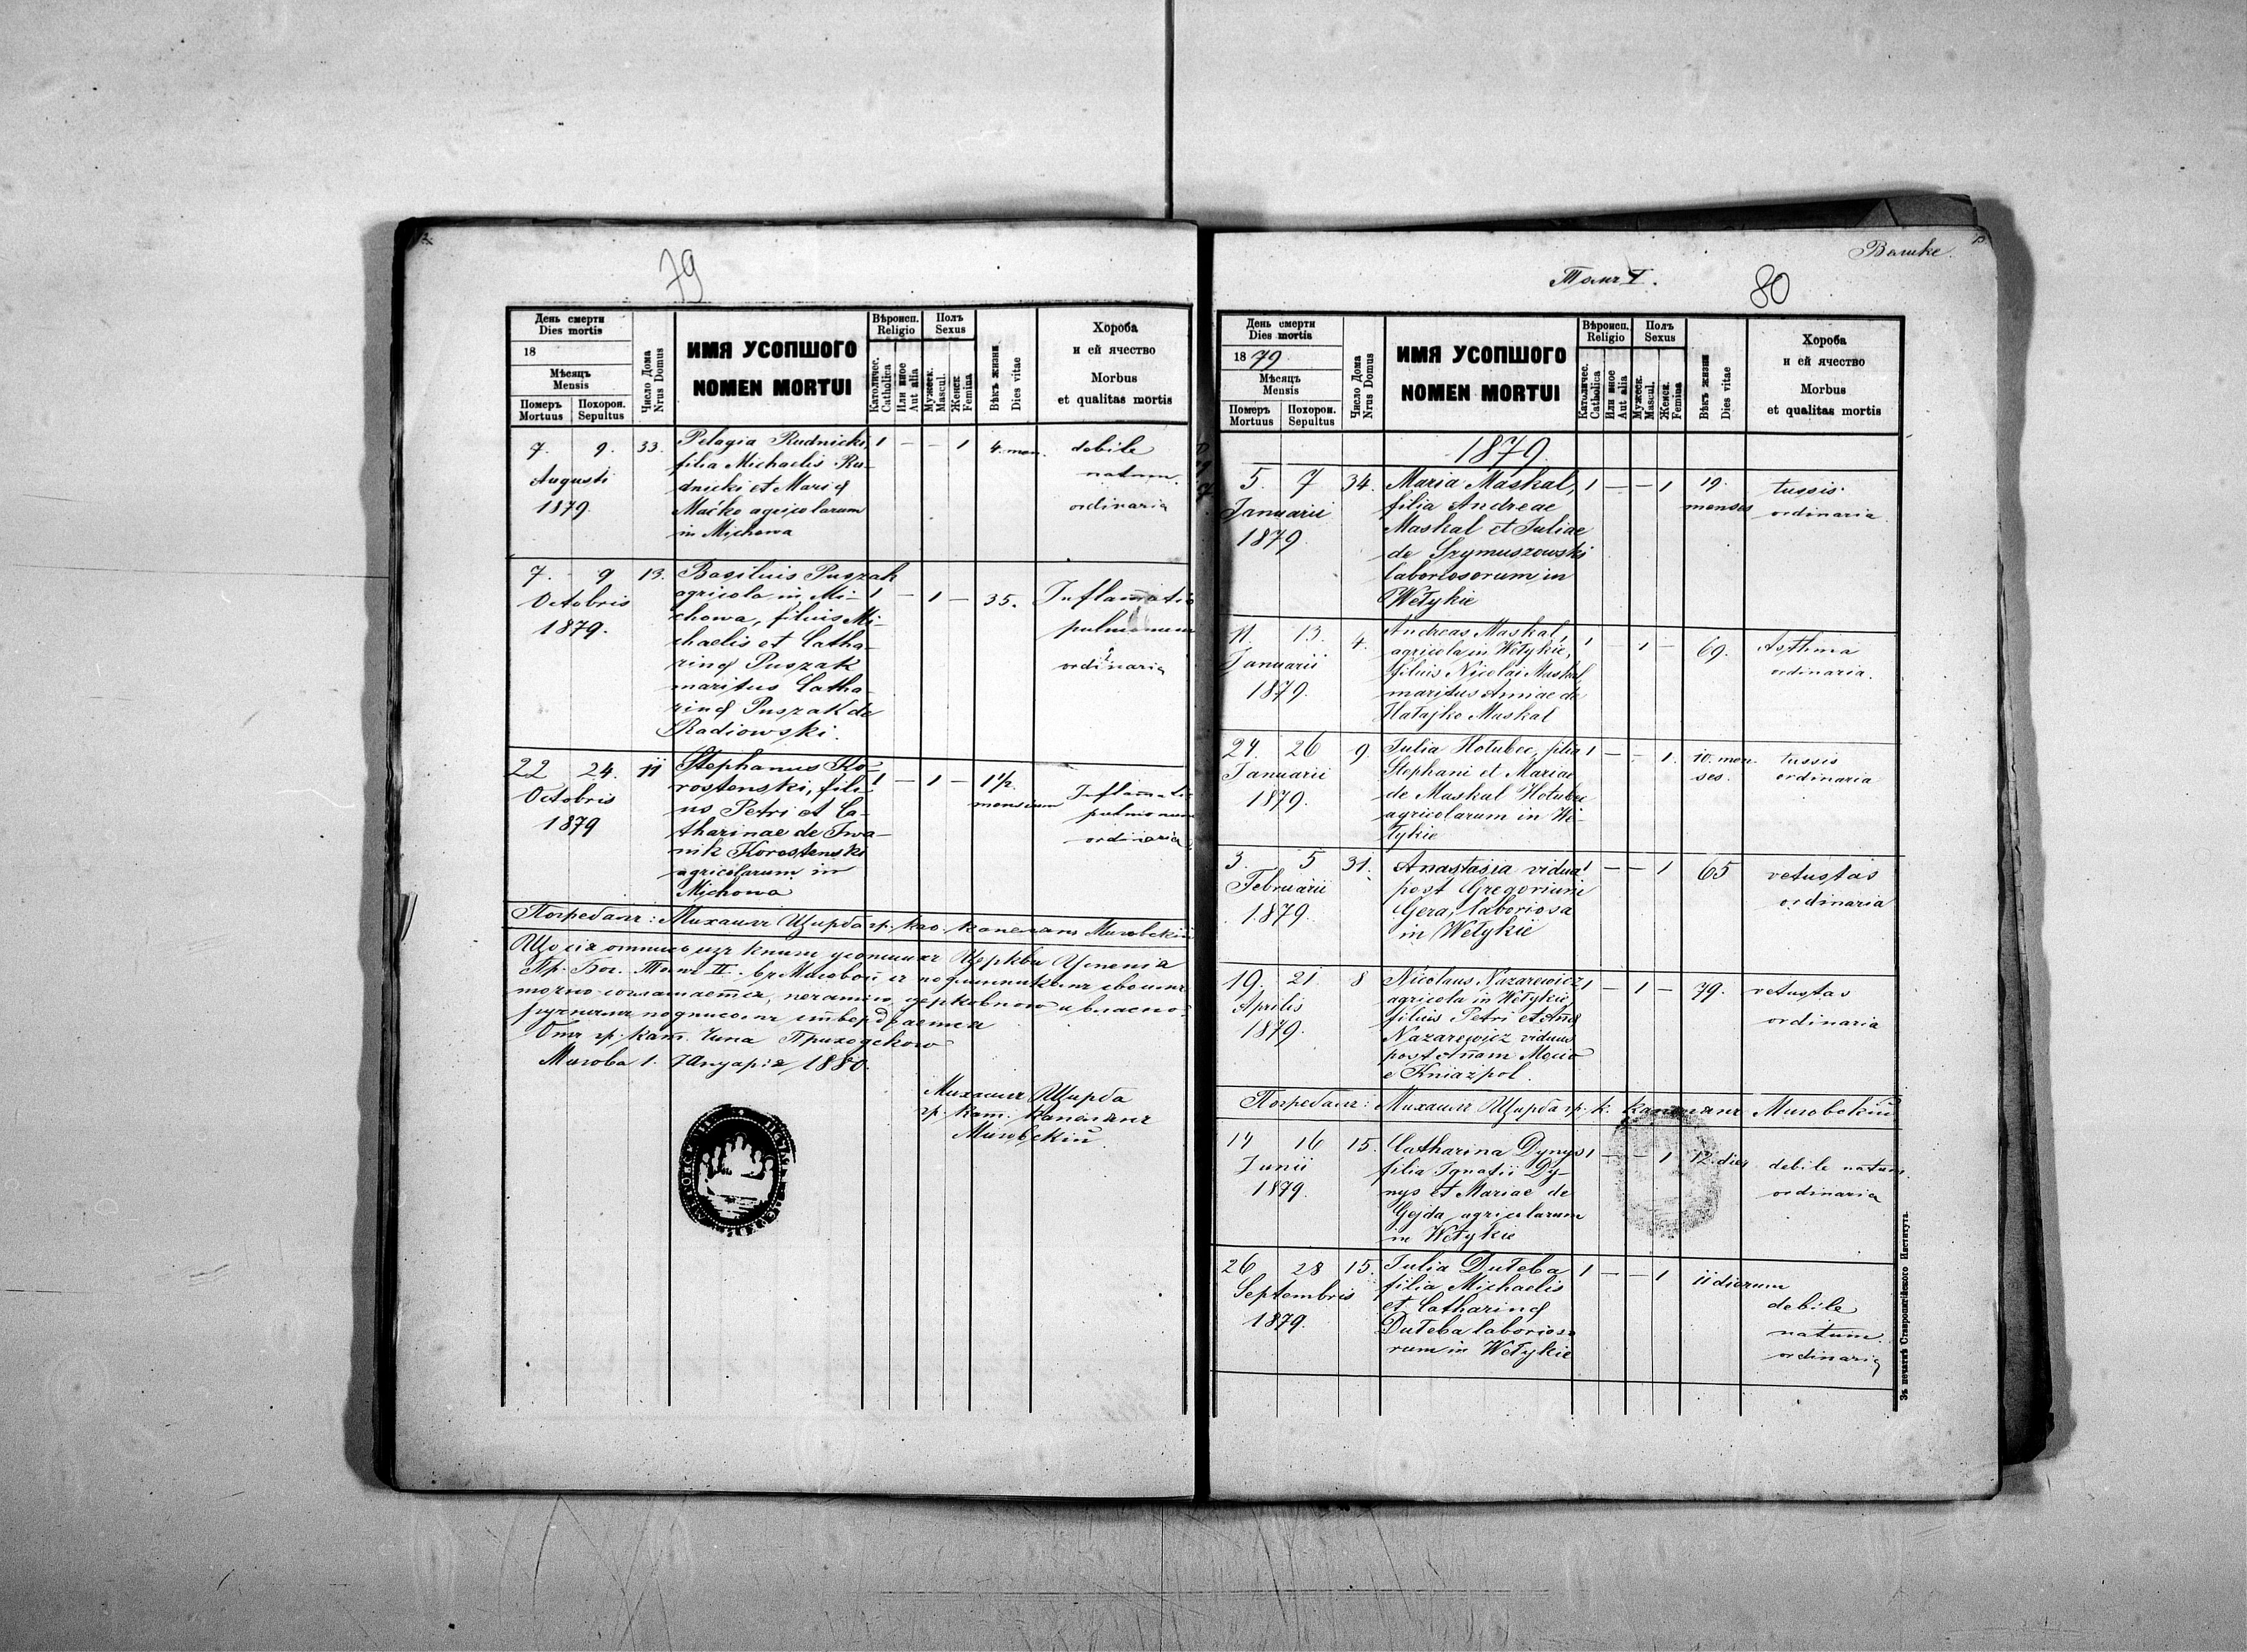 79
День смерти
Dies mortis
18
Мѣсяцъ
Mensis
Померъ Похорон.
Mortuus Sepultus
Число Дома
Nrus Domus
ИМЯ УСОПШОГО
NOMEN MORTUI
Вѣроисп.
Religio
Католичес.
Catholica
Или иное
Aut alia
Полъ
Sexus
Мужеск.
Mascul.
Женск.
Femina
Вѣкъ жизни
Dies vitae
Хороба
и ей ячество
Morbus
et qualitas mortis
7. 9. 33. Pelagia Rudnicki, 1 — — 1 4. men. debile
filia Michaelis Ru-
natum
Augusti dnicki et Marię
1879. Maćko agricolarum ordinaria
in Michowa
7. 9 13. Basilius Puszak
agricola in Mi- 1 — 1 — 35. Inflam̄atio
Octobris chowa, filius Mi- pulmonum
1879. chaelis et Catha-
rinę Puszak ordinaria
maritus Catha-
rinę Puszak de
Radiowski.
22 24. 11 Stephanus Ko-
rostenski, fili- 1 — 1 — 1½ Inflam̄atio
Octobris us Petri et Ca- mensium pulmonum
1879 tharinae de Iwa- ordinaria
nik Korostenski
agricolarum in
Michowa
Погребалъ: Михаилъ Щирба гр. као. капеланъ Миговскій
Що сія отпись изъ книги усопшихъ Церкви Успенія
Пр. Бог. Томъ II. въ Миговой съ подлинникомъ своимъ
точно соглашается, печатію церковною и власно-
ручнымъ подписомъ ствердѣается
Отъ гр. кат. Чина Приходского
Мигова 1. Януарія 1880.
Михаилъ Щирба
гр. кат. капеланъ
Миговскій
Томъ I.
80
День смерти
Dies mortis
18 79.
Мѣсяцъ
Mensis
Померъ Похорон.
Mortuus Sepultus
Число Дома
Nrus Domus
ИМЯ УСОПШОГО
NOMEN MORTUI
Вѣроисп.
Religio
Католичес.
Catholica
Или иное
Aut alia
Полъ
Sexus
Мужеск.
Mascul.
Женск.
Femina
Вѣкъ жизни
Dies vitae
Хороба
и ей ячество
Morbus
et qualitas mortis
1879.
5. 7 34. Maria Maskal, 1 — — 1 19. tussis
Januarii filia Andreae menses ordinaria
1879. Maskal et Juliae
de Szymuszowski
laboriosorum in
Wełykie
11. 13. 4. Andreas Maskal, 1 — 1 — 69. Asthma
agricola in Wełykie,
Januarii filius Nicolai Maskal, ordinaria.
1879. maritus Annae de
Hałajko Maskal
24. 26 9. Julia Hołubec, filia 1 — — 1. 10. men- tussis
Januarii Stephani et Mariae ses. ordinaria
1879. de Maskal Hołubec
agricolarum in We-
łykie
3. 5 31. Anastasia vidua 1 — — 1 65 vetustas
Februarii post Gregorium
1879. Gera, laboriosa ordinaria
in Wełykie
19. 21. 8 Nicolaus Nazarewicz 1 — 1 — 79. vetustas
Aprilis agricola in Wełykie,
1879. filius Petri et Annę ordinaria
Nazarewicz viduus
post Annam
e Kniażpol.
Погребалъ: Михаилъ Щирба гр. к. капеланъ Миговскій
14 16 15. Catharina Dynys 1 — — 1 12. dies debile natum
Junii filia Ignatii Dy-
1879. nys et Mariae de ordinaria
Gejda agricolarum
in Wełykie
26 28 15. Julia Duteba 1 — — 1 11 dierum
Septembris filia Michaelis debile
et Catharinę natum
1879. Duteba laborioso- ordinaria
rum in Wełykie
Зъ печатнѣ Ставропигійского Института.